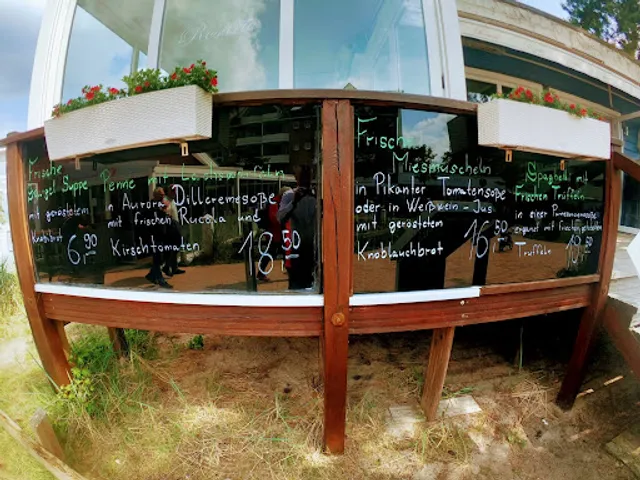 Frische
Suppe
mit geröstetem
Knoblauchbrot
6,90
Penne mit
in Aurora Dillcremesoße
mit frischen Rucola und
Kirschtomaten
18,50
Frische
Miesmuscheln
in Pikanter Tomatensoße
oder in Weißwein-Jus
mit geröstetem
Knoblauchbrot
16,50
Spaghetti mit
Frischen Trüffeln
in einer Parmesansoße
ergänzt mit frisch gehobelten
Trüffeln